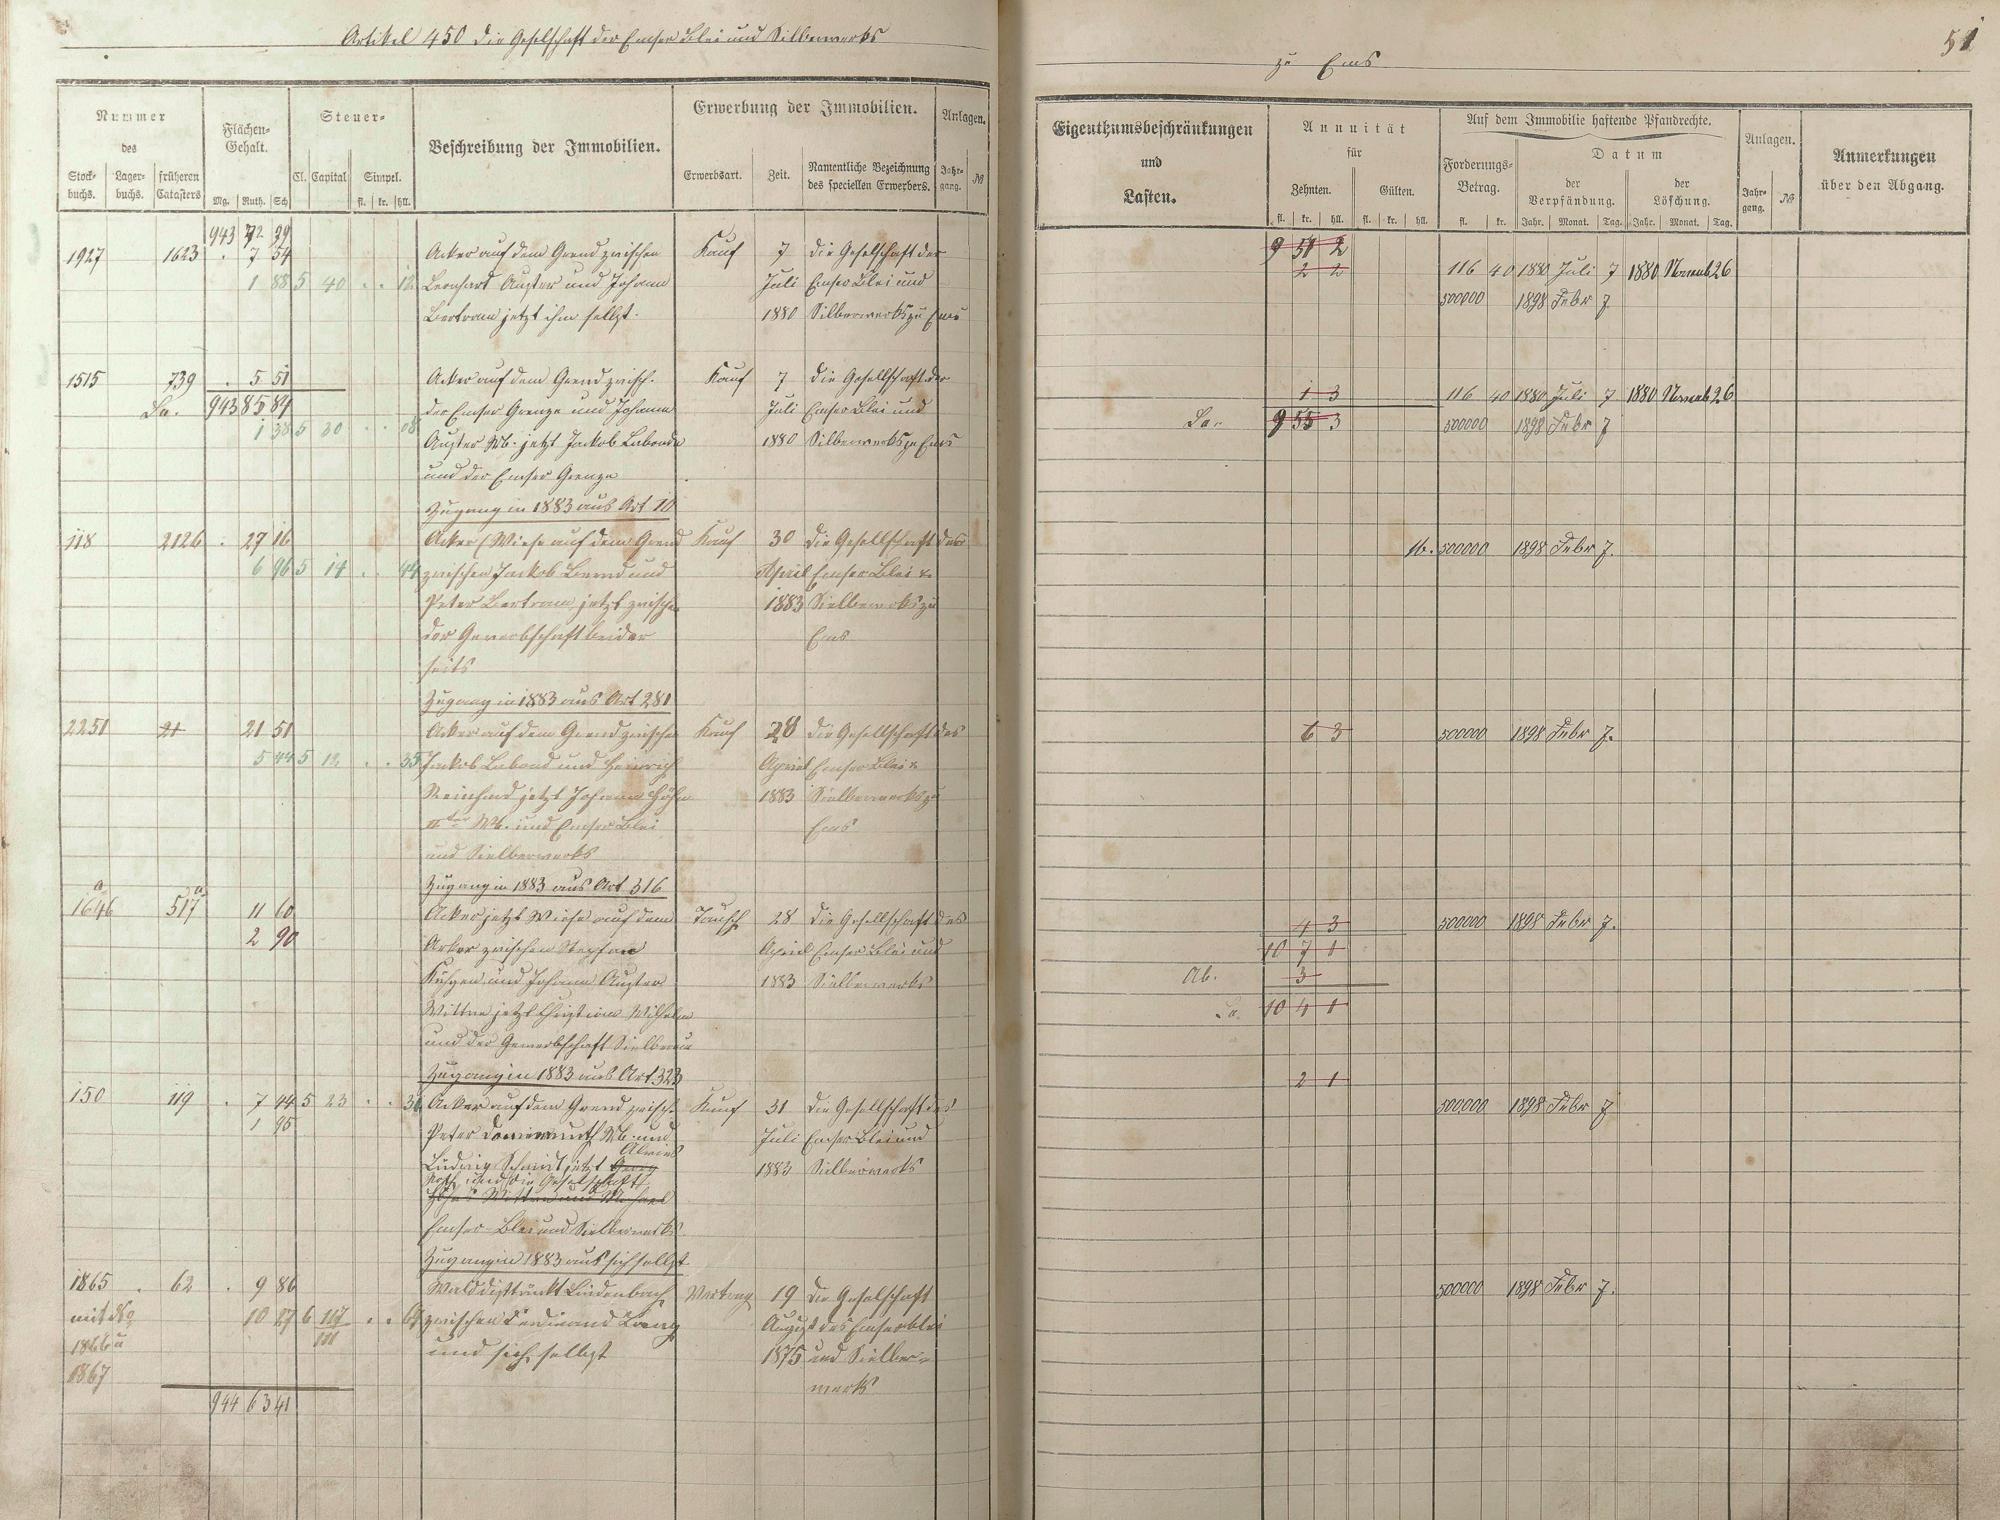 Artikel 450 die Geselschaft der Emser Blei und Silberwerks
zu Ems
51
Nummer
des
Stock-
buchs.
Lager-
buchs.
früheren
Catasters
Flächen-
Gehalt.
Mg. Ruth. Sch
Steuer-
Cl. Capital Simpel.
fl. kr. hll.
Beschreibung der Immobilien.
Erwerbung der Immobilien.
Erwerbsart. Zeit. Namentliche Bezeichnung
des speciellen Erwerbers.
Anlagen.
Jahr-
gang. №
Eigenthumsbeschränkungen
und
Lasten.
Annuität
für
Zehnten. Gülten.
fl. kr. hll. fl. kr. hll.
Auf dem Immobilie haftende Pfandrechte.
Forderungs-
Betrag.
fl. kr.
Datum
der
Verpfändung.
Jahr. Monat. Tag.
der
Löschung.
Jahr. Monat. Tag.
Anlagen.
Jahr-
gang. №
Anmerkungen
über den Abgang.
943 72 99
1927 1623 . 7 54 Acker auf dem Grend zwischen Kauf 7 die Geselschaft der
1 88 5 40 . . 12 Leonhart Auster und Johann Juli Emser Blei und
Bertram jetzt ihm selbst. 1880 Silberwerks zu Ems
9 51 2
2 2 116 40 1880 Juli 7 1880 Novemb 26
500000 1898 Febr 7
1515 739 . 5 51 Acker auf dem Grend zwisch. Kauf 7 die Gesellschaft der
Sa. 943 85 84 der Emser Grenze und Johann Juli Emser Blei und
1 38 5 30 . . 08 Auster Wb. jetzt Jackob Labonde 1880 Silberwerks zu Ems
und der Emser Grenze
1 3 116 40 1880 Juli 7 1880 Novemb 26
Sa. 9 55 3 500000 1898 Febr 7
Zugang in 1883 aus Art 10
118 2126 . 27 16 Acker (Wiese auf dem Grend Kauf 30 die Gesellschaft des
6 96 5 14 . . 44 zwischen Jackob Bernd und April Emser Blei u.
Peter Bertram jetzt zwischen 1883 Sielberwerks zu
der Gewerbschaft beider Ems
seits
500000 1898 Febr 7.
Zugang in 1883 aus Art 281
2251 21 21 51 Acker auf dem Grend zwischen Kauf 28 die Gesellschaft des
5 44 5 12 . . 35 Jackob Labond und Heinrich Apriel Emser Blei u
Reinhard jetzt Johann Höhn 1883 Sielberwerks zu
IIter Wb. und Emser Blei Ems
und Sielberwerks
6 3 500000 1898 Febr 7.
Zugang in 1883 aus Art 316
1646 a 517 a 11 60 Acker jetzt Wiese auf dem Tausch 28 die Gesellschaft des
2 90 Acker zwischen Stephan Apriel Emser Blei und
und Johann Auster 1883 Sielberwerks
Wittwe jetzt Christian Wilhelm
und der Gewerbschaft
4 3 500000 1898 Febr 7.
10 7 1
Ab. 3
Sa. 10 4 1
Zugang in 1883 aus Art 323
150 119 . 7 44 5 23 . . Acker auf dem Grend zwisch. Kauf 31 die Gesellschaft des
1 95 Peter Wb. und Juli Emser Blei und
Ludwig Schmidt jetzt Georg 1883 Sielberwerks
und die Geselschaft
Emser-Blei und Sielberwerks
2 1
500000 1898 Febr 7
Zugang in 1883 aus sich selbst
1865 62 . 9 86 Walddistrickt Lindenbach Vertrag 19 die Geselschaft
mit No 10 27 6 117 . . zwischen Ferdinand August des Emserblei
1866 u 111 und sich selbst 1875 und Sielber-
1867 werks
500000 1898 Febr 7.
944 63 41